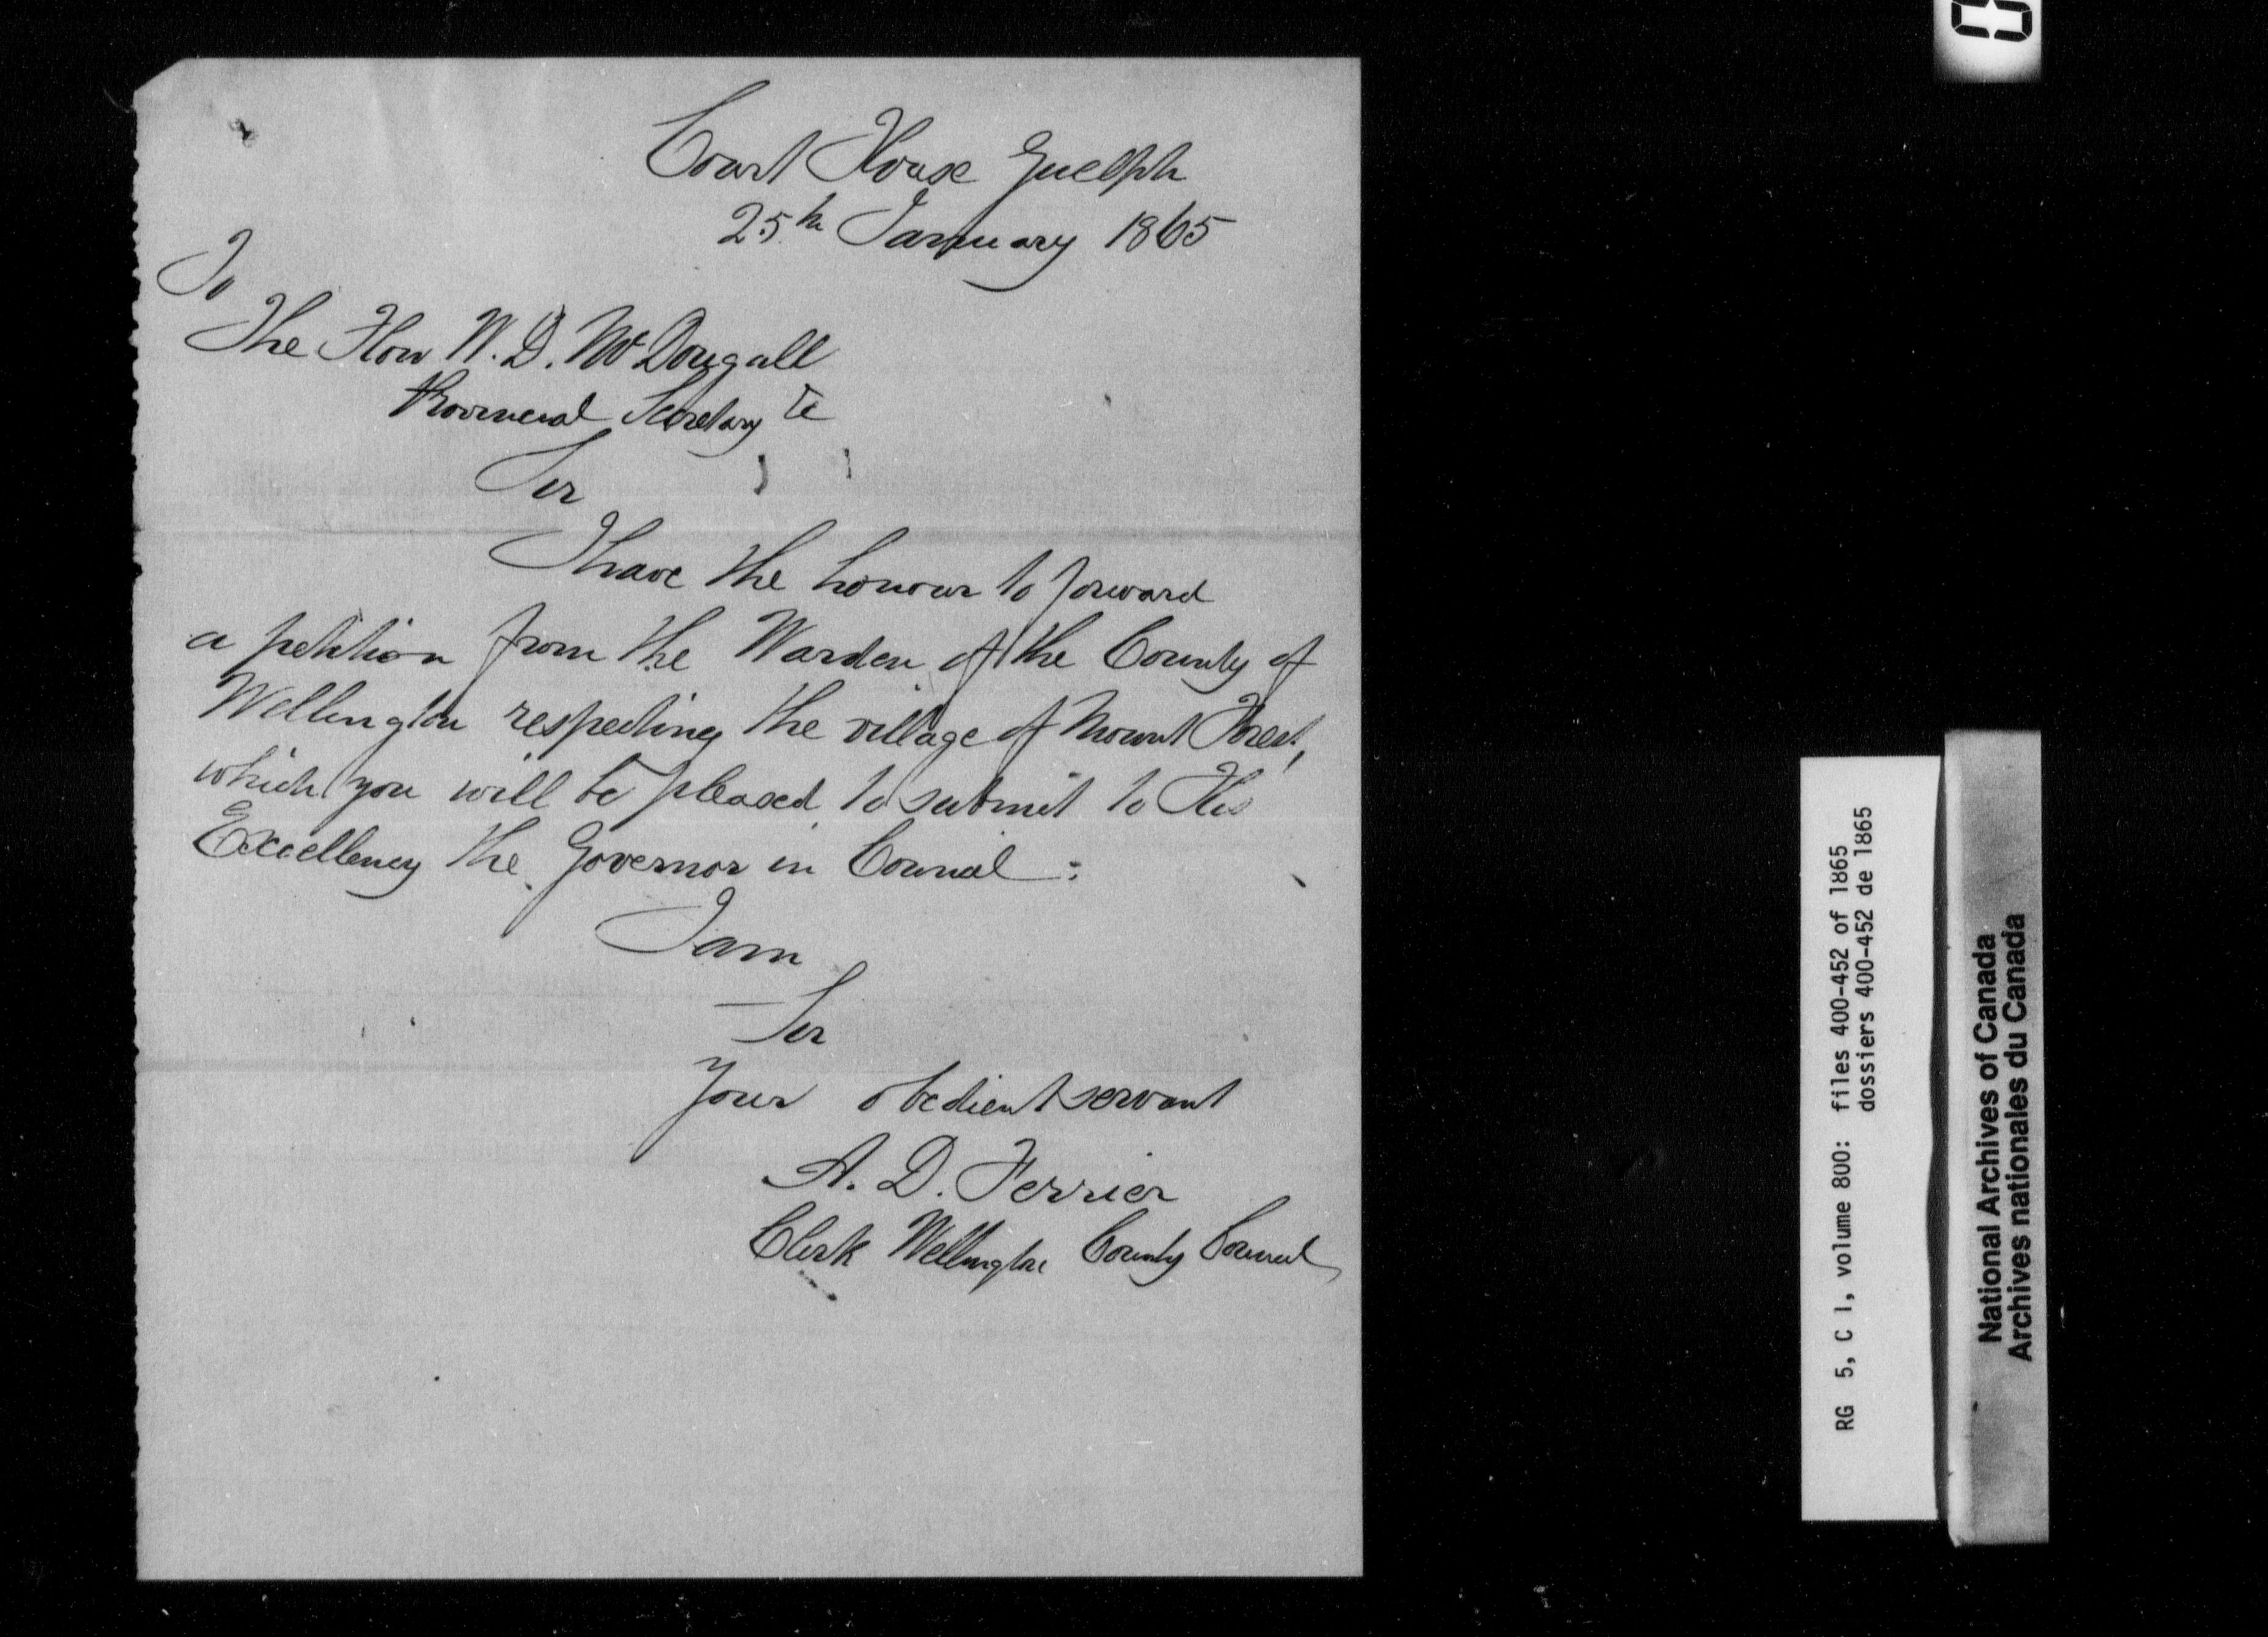 Court House Guelph
25th January 1865
To
The Hon W. D. McDougall
Provincial Secretary &c
Sir
I have the honour to forward
a petition from the Warden of the County of
Wellington respecting the village of Mount Forest,
which you will be pleased to submit to His
Excellency the Governor in Council :
I am
Sir
Your obedient servant
A. D. Ferrier
Clerk Wellington County Council
RG 5, C 1, volume 800: files 400-452 of 1865
dossiers 400-452 de 1865
National Archives of Canada
Archives nationales du Canada